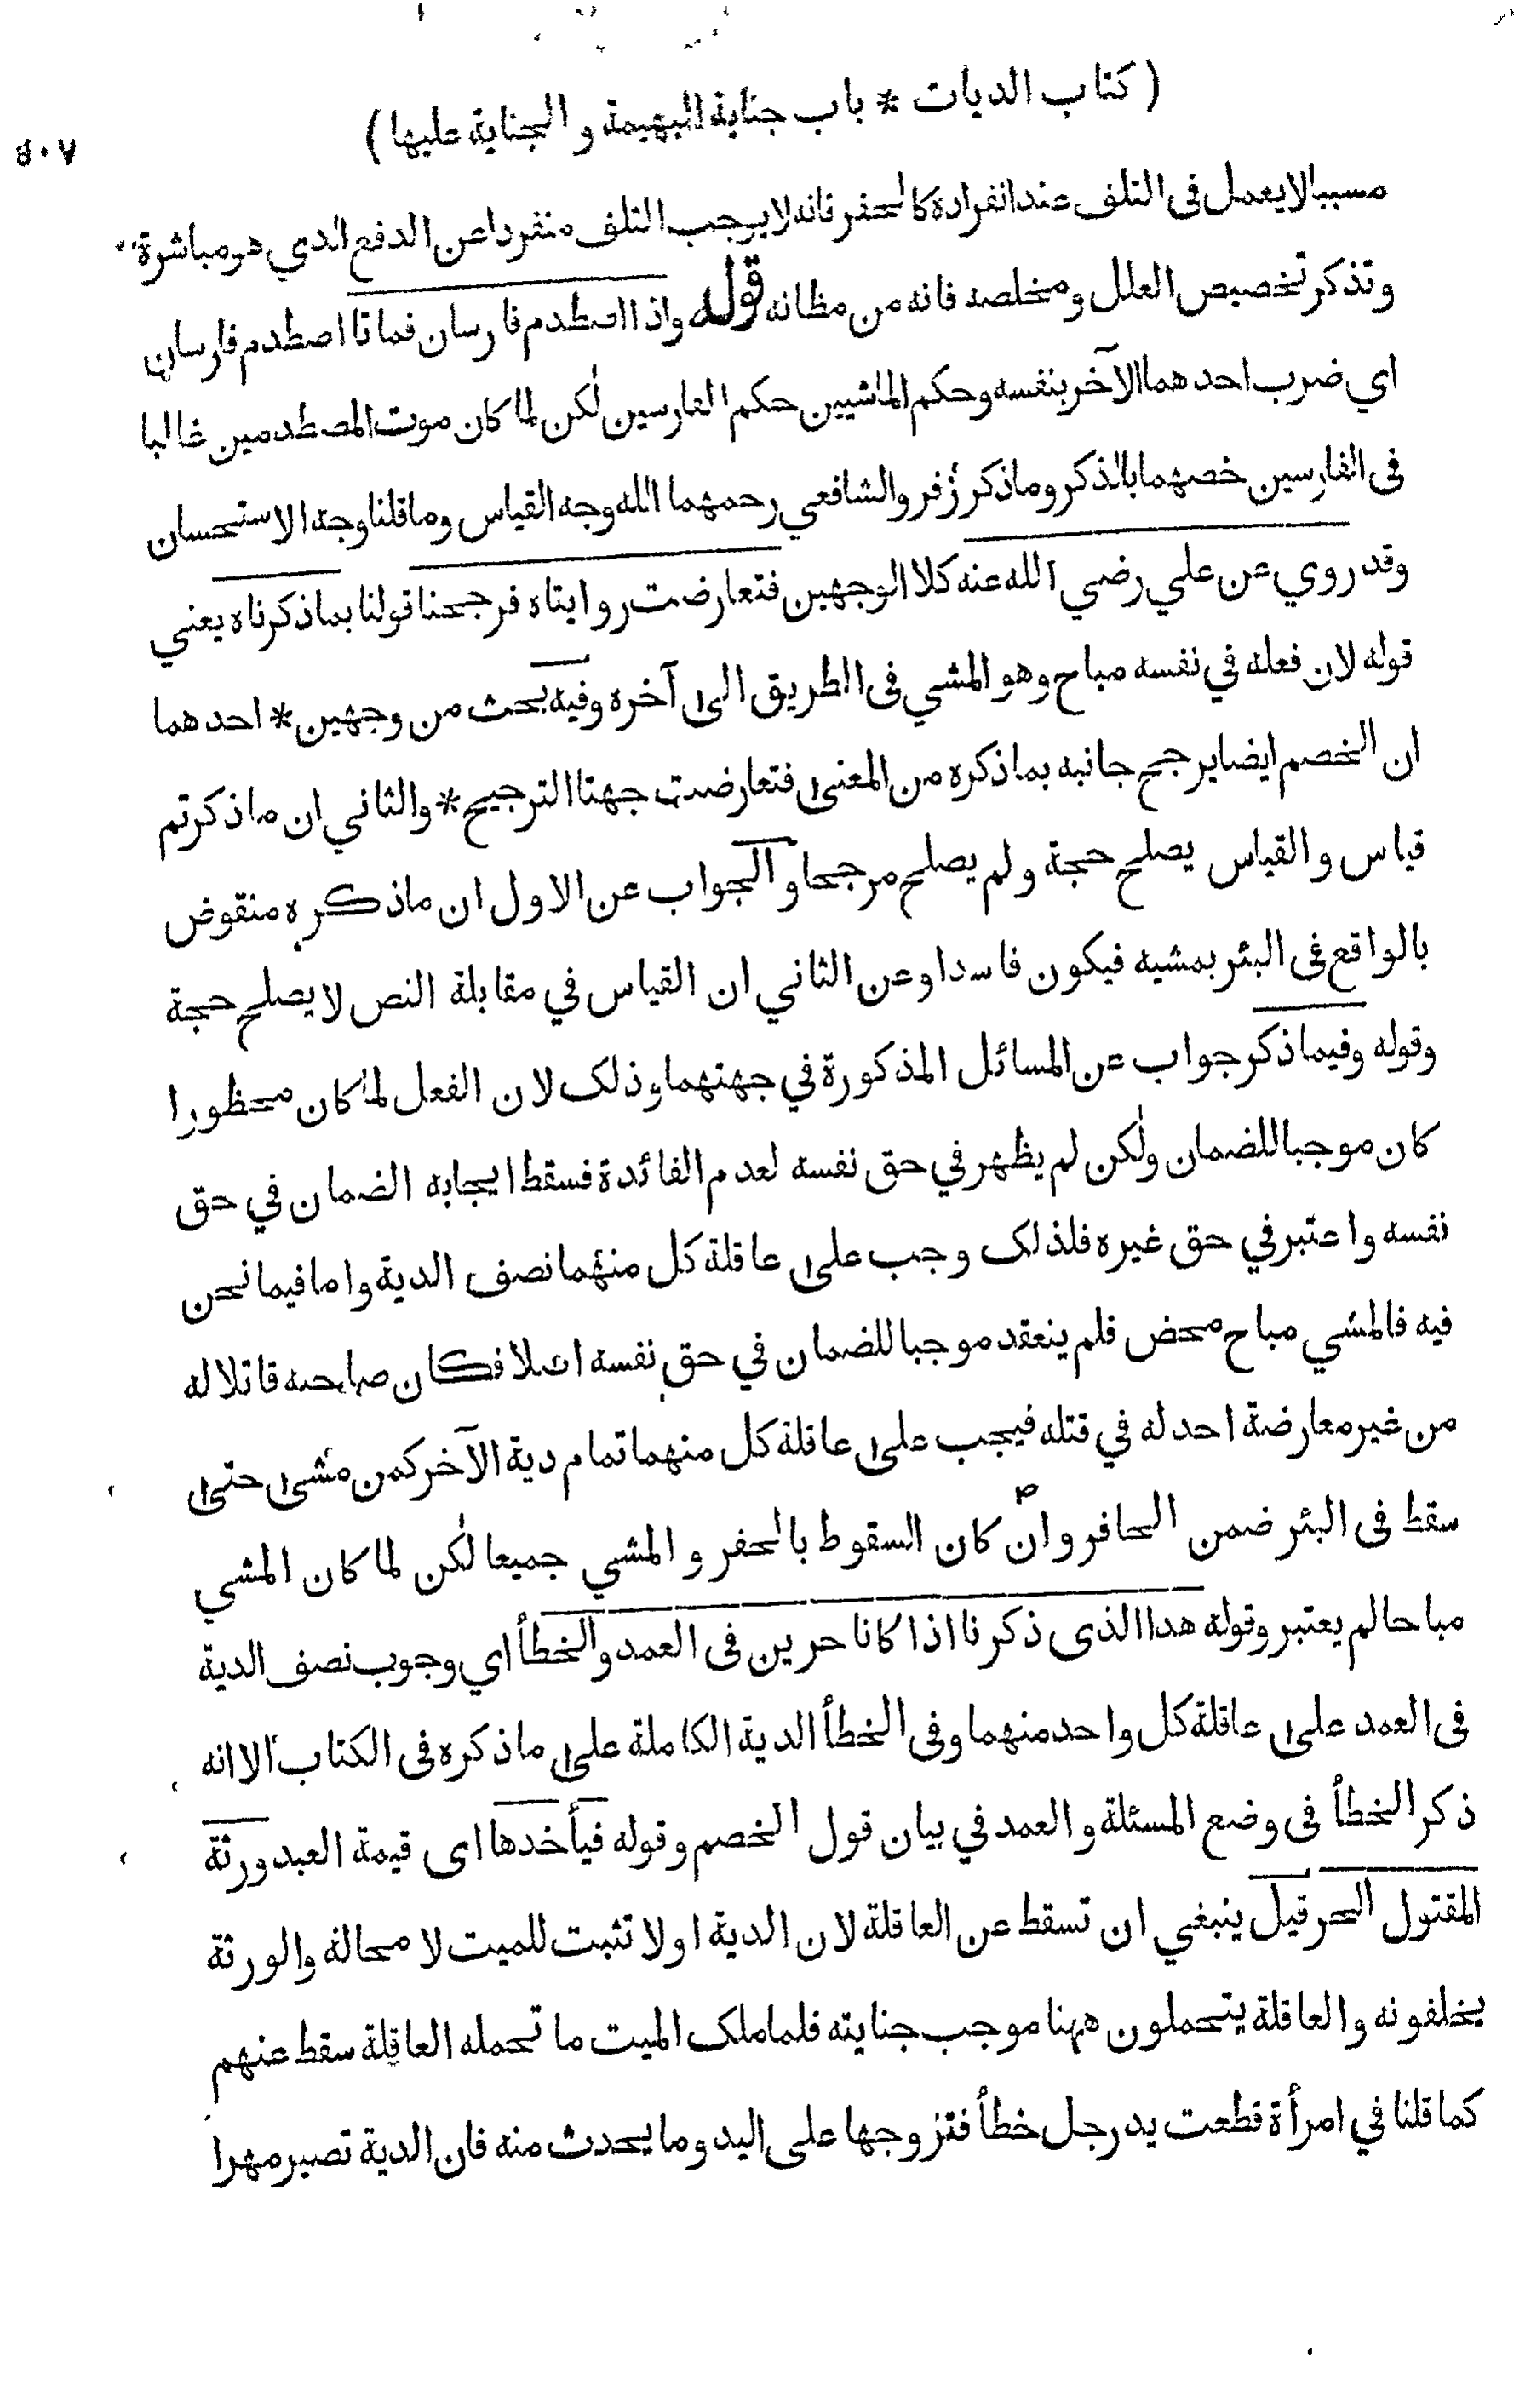 ( كتاب الديات * باب جناية البهيمة و الجناية عليها )
٥٠٧
مسببا لا يعمل فى التلف عند انفراده كالحفر فانه لا يوجب التلف منفردا عن الدفع الذي هو مباشرة
وتذكر تخصيص العلل ومخلصه فانه من مظانه قوله واذا اصطدم فارسان فماتا اصطدم فارسان
اي ضرب احدهما الآخر بنفسه وحكم الماشيين حكم الفارسين لكن لما كان موت المصطدمين غالبا
فى الفارسين خصهما بالذكر وما ذكر زفر والشافعي رحمهما الله وجه القياس وما قلنا وجه الاستحسان
وقد روي عن علي رضي الله عنه كلا الوجهين فتعارضت روايتاه فرجحنا قولنا بما ذكرناه يعني
قوله لان فعله في نفسه مباح وهو المشي فى الطريق الى آخره وفيه بحث من وجهين * احدهما
ان الخصم ايضا يرجح جانبه بما ذكره من المعنى فتعارضت جهتا الترجيح * والثاني ان ما ذكرتم
قياس و القياس يصلح حجة و لم يصلح مرجحا و الجواب عن الاول ان ما ذكره منقوض
بالواقع فى البئر بمشيه فيكون فاسدا وعن الثاني ان القياس في مقابلة النص لا يصلح حجة
وقوله وفيما ذكر جواب عن المسائل المذكورة في جهتهما وذلك لان الفعل لما كان محظورا
كان موجبا للضمان ولكن لم يظهر في حق نفسه لعدم الفائدة فسقط ايجابه الضمان في حق
نفسه واعتبر في حق غيره فلذلك وجب على عاقلة كل منهما نصف الدية واما فيما نحن
فيه فالمشي مباح محض فلم ينعقد موجبا للضمان في حق نفسه اصلا فكان صاحبه قاتلا له
من غير معارضة احد له في قتله فيجب على عاقلة كل منهما تمام دية الآخر كمن مشى حتى
سقط فى البئر ضمن الحافر و ان كان السقوط بالحفر و المشي جميعا لكن لما كان المشي
مباحا لم يعتبر وقوله هذا الذى ذكرنا اذا كانا حرين فى العمد والخطأ اي وجوب نصف الدية
فى العمد على عاقلة كل واحد منهما وفى الخطأ الدية الكاملة على ما ذكره فى الكتاب الا انه
ذكر الخطأ فى وضع المسئلة و العمد في بيان قول الخصم وقوله فيأخذها اى قيمة العبد ورثة
المقتول الحر قيل ينبغي ان تسقط عن العاقلة لان الدية اولا تثبت للميت لا محالة والورثة
يخلفونه والعاقلة يتحملون ههنا موجب جنايته فلما ملك الميت ما تحمله العاقلة سقط عنهم
كما قلنا في امرأة قطعت يد رجل خطأ فتزوجها على اليد وما يحدث منه فان الدية تصير مهرا